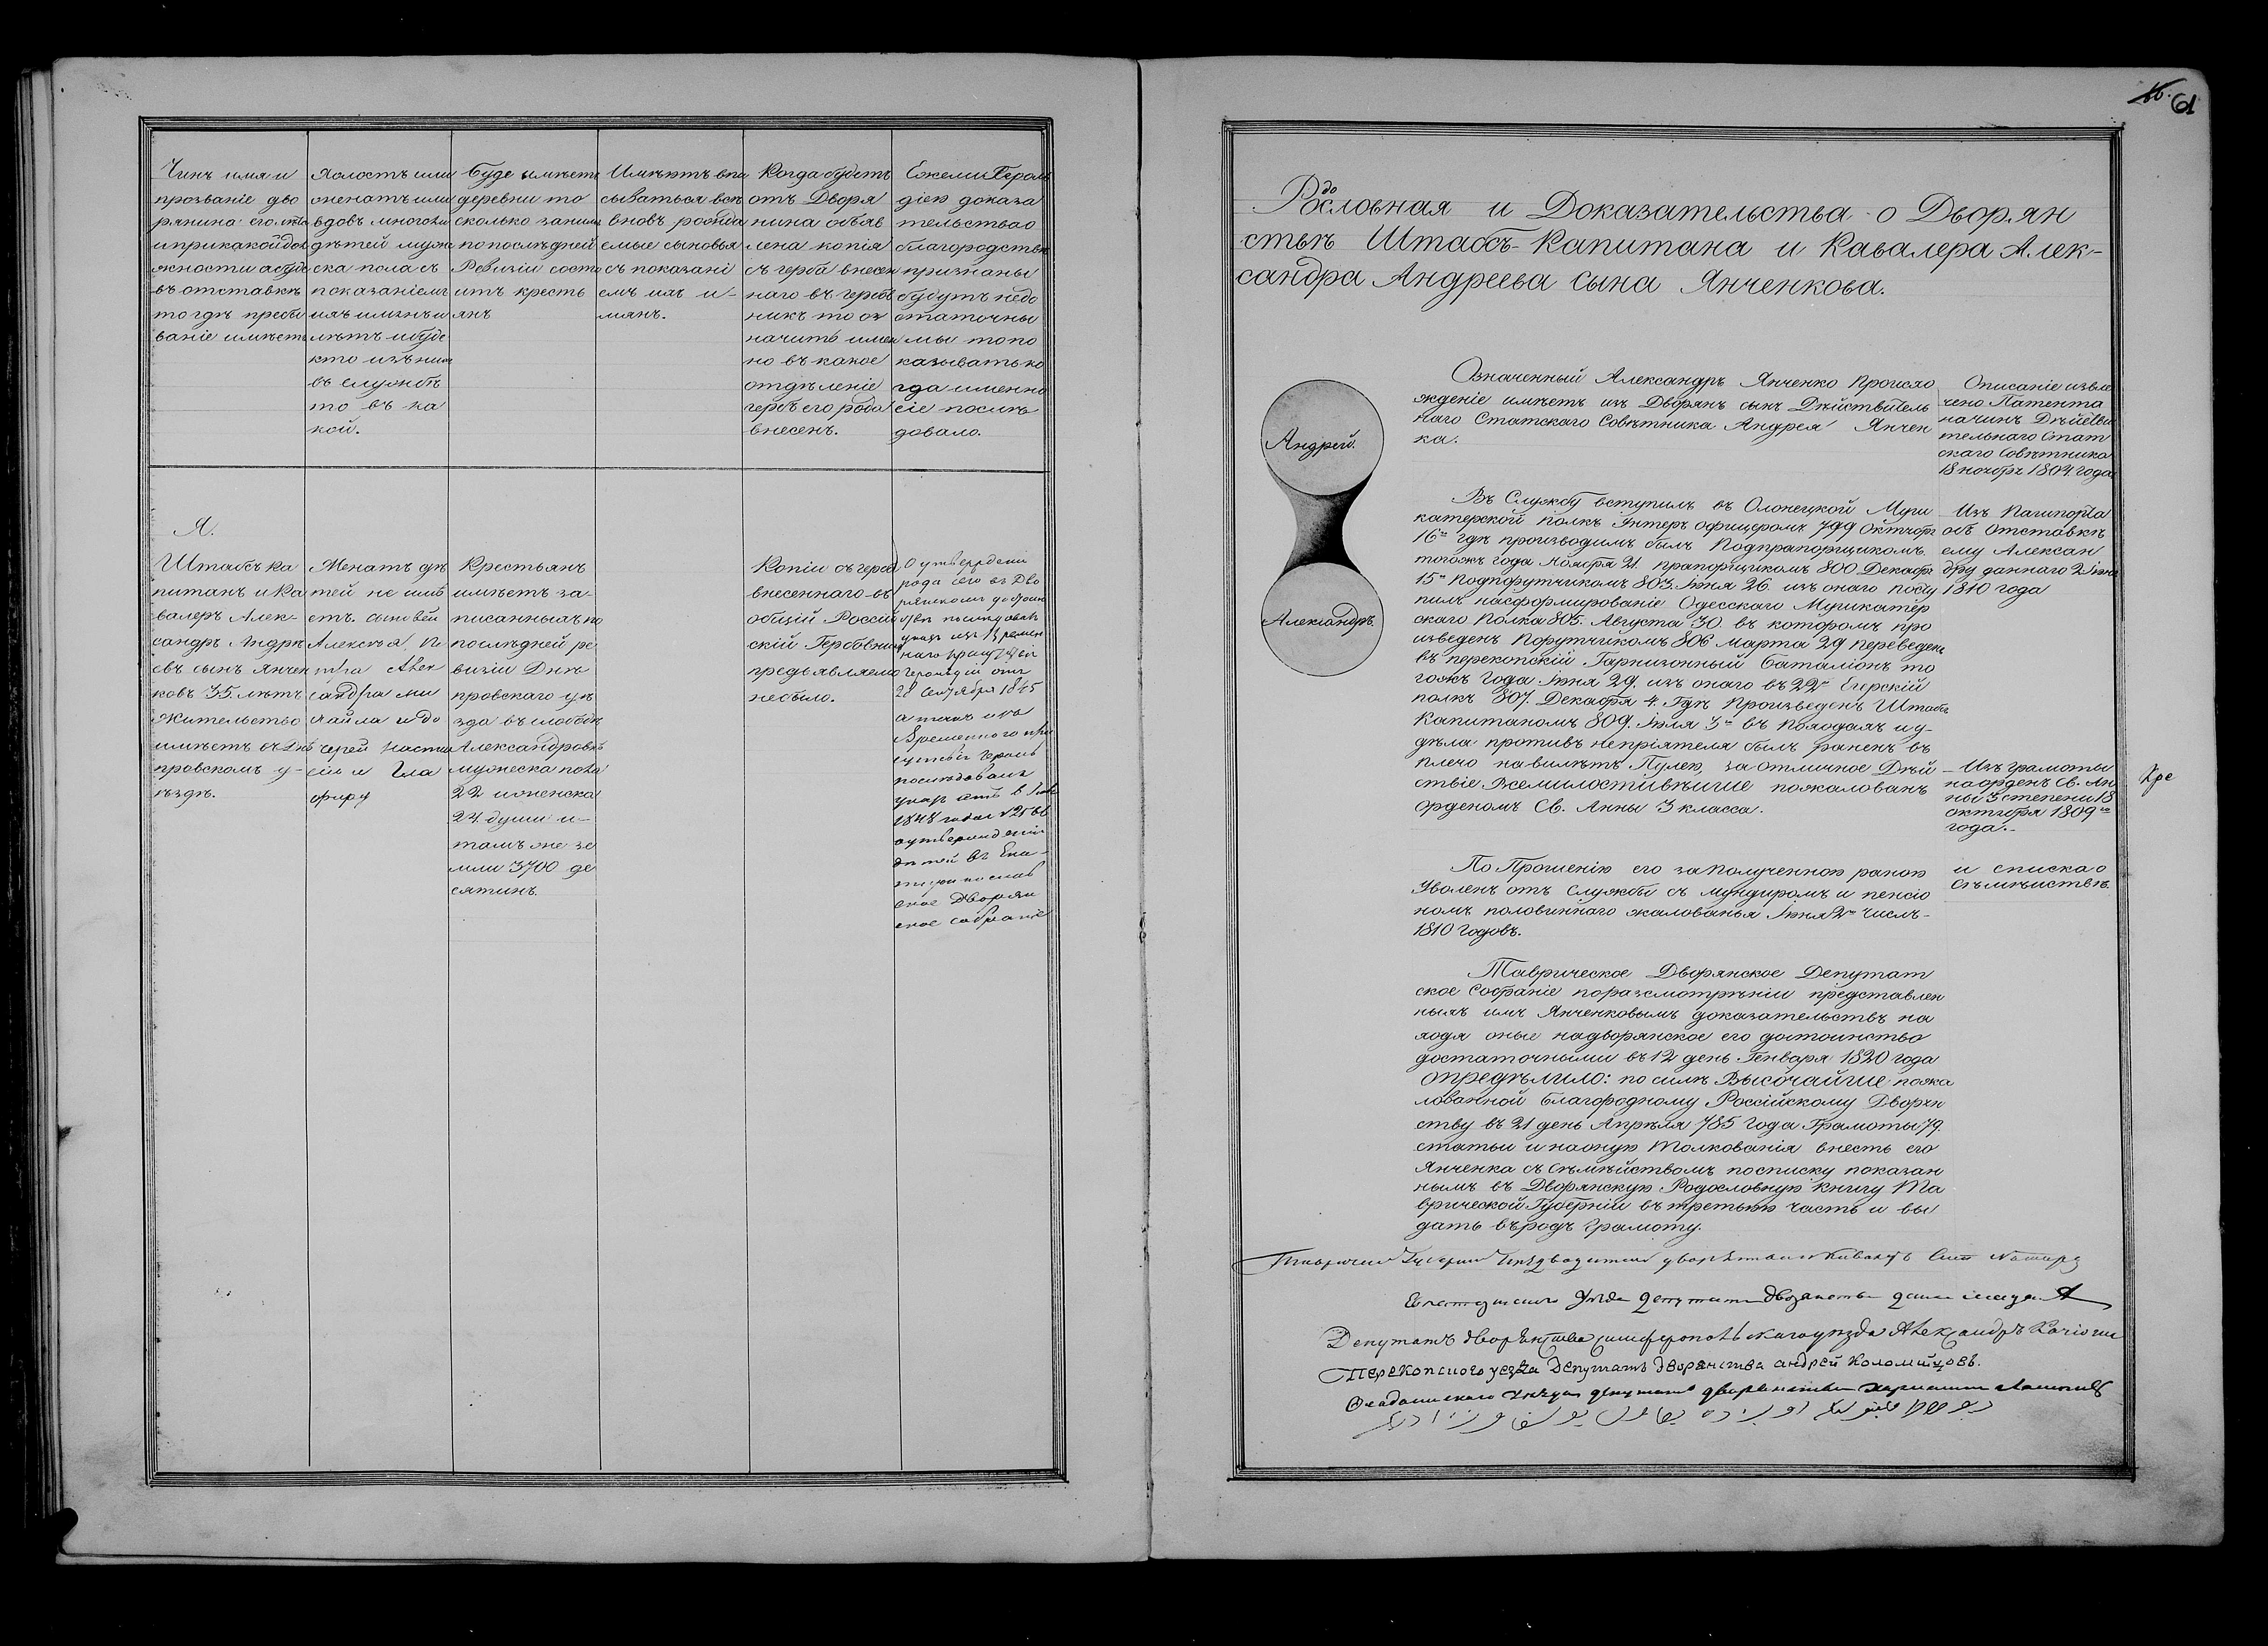 Чинъ имя и
прозваніе дво
рянина его лѣта
и при какой дол
жности а буде
въ отставкѣ
то гдѣ пребы
ваніе имѣетъ
Холостъ или
женатъ или
вдовъ много ли
дѣтей муже
ска пола съ
показаніемъ
ихъ имянъ и
лѣтъ и буде
кто изъ них
въ службѣ
то въ ка
кой.
Буде имѣетъ
деревни то
сколько за ним
по послѣдней
Ревизіи состо
итъ кресть
янъ
Имѣютъ впи
сываться всѣ
вновь рожда
емые сыновья
съ показані
емъ ихъ и-
мянъ.
Когда будетъ
отъ Дворя
нина объяв
лена копія
съ герба внесен
наго въ герб
никъ то оз
начить имен
но въ какое
отдѣленіе
гербъ его рода
внесенъ.
Ежели Героль
діею доказа
тельства о
благородствѣ
признаны
будутъ недо
статочны
ми то по
казывать ко
гда именно
сіе послѣ
довало.
Я.
Штабсъ Ка
питанъ и Ка
валеръ Алек-
сандръ Андрѣ
евъ сынъ Янчен
ковъ 35. лѣтъ
жительство
имѣетъ въ Днѣ
провскомъ у-
ѣздѣ.
Женатъ дѣ
тей не имѣ
етъ. сыновей
Алексѣя, Пе
тра Алек
сандра Ми
хаила и до
черей Наста
сію и Гла
фиру
Крестьянъ
имѣетъ за-
писанныхъ по
послѣдней ре
визіи Днѣ
провскаго уѣ
зда въ слободѣ
Александровкѣ
мужеска пола
22 и женска
24. души и-
тамъ же зе
мли 3700 де
сятинъ.
Копіи съ герба
внесеннаго въ
общій Россій
скій Гербовник
предъявляемо
небыло.
О утвержденіи
рода сего въ Дво
рянскомъ достоин
ствѣ послѣдовалъ
указъ изъ Времен
наго присутствія
Герольдіи отъ
28 Сентября 1845
а также изъ
Временного при
сутствія Герольдіи
послѣдовалъ
указъ отъ
1848 года
о утвержденіи
дѣтей въ Ека-
теринослав
ское Дворян
ское собраніе
61
Родословная и Доказательства о Дворян
ствѣ Штабсъ-Капитана и Кавалера Алек-
сандра Андреева сына Янченкова.
Андрей.
Александръ.
Означенный Александръ Янченко Происхо
жденіе имѣетъ изъ Дворянъ сынъ Дѣйствитель
наго Статскаго Совѣтника Андрея Янчен
ка.
Описаніе извле
чено Патента
на чинъ Дѣйстви
тельнаго Стат
скаго Совѣтника
18 ноябрѣ 1804. года
Въ Службу вступилъ въ Олонецкой Муш
катерской полкъ Унтеръ офицеромъ 799 Октября
16го гдѣ производимъ былъ Подпрапорщикомъ
того жъ года Ноября 21 прапорщикомъ 800 Декабря
15го Подпорутчикомъ 803. Іюня 26. изъ онаго посту
пилъ на сформированіе Одесскаго Мушкатер
скаго Полка 805. Августа 30 въ которомъ про
изведенъ Порутчикомъ 806 марта 29 переведенъ
въ перекопскій Гарнизонный баталіонъ то
гожъ года Іюня 29. изъ онаго въ 22й Егерскій
полкъ 807. Декабря 4. Гдѣ Произведенъ Штабсъ
Капитаномъ 809. Іюля 3го въ Походахъ и у-
дѣла противъ непріятеля былъ раненъ въ
плечо на вылетъ Пулею, за отличное Дѣй
ствіе Всемилостивѣйше пожалованъ
орденомъ Св. Анны 3 класса.
Изъ Пашпорта
объ отставкѣ
ему Алексан
дру даннаго 2 Іюня
1810 года
Изъ грамоты
на орденъ Св. Ан
ны 3 степени 18
октября 1809го
года.
Кре
По Прошенію его за полученною раною
Уволенъ отъ Службы съ мундиромъ и пенсіо
номъ половиннаго жалованья Іюня 2го числъ-
1810 Годовъ.
и списка о
съмѣиствѣ.
Таврическое Дворянское Депутат
ское Собраніе по разсмотрѣніи представлен
ныхъ имъ Янченковымъ доказательствъ на
ходя оныя на дворянское его достоинство
достаточными въ 12 день Генваря 1820 года
опредѣлило: по силѣ Высочайше пожа
лованной благородному Россійскому Дворян
ству въ 21 день Апрѣля 785 года Грамоты 79.
статьи и на оную толкованія внесть его
Янченка съ съмѣйствомъ по списку показан
нымъ въ Дворянскую Родословную книгу Та
врической Губерніи въ третью часть и вы
дать въ родъ грамоту.
Депутатъ дворянства симферопольскаго уѣзда Александръ
Перекопского уезда Депутатъ дворянства андрей Коломийцовъ.